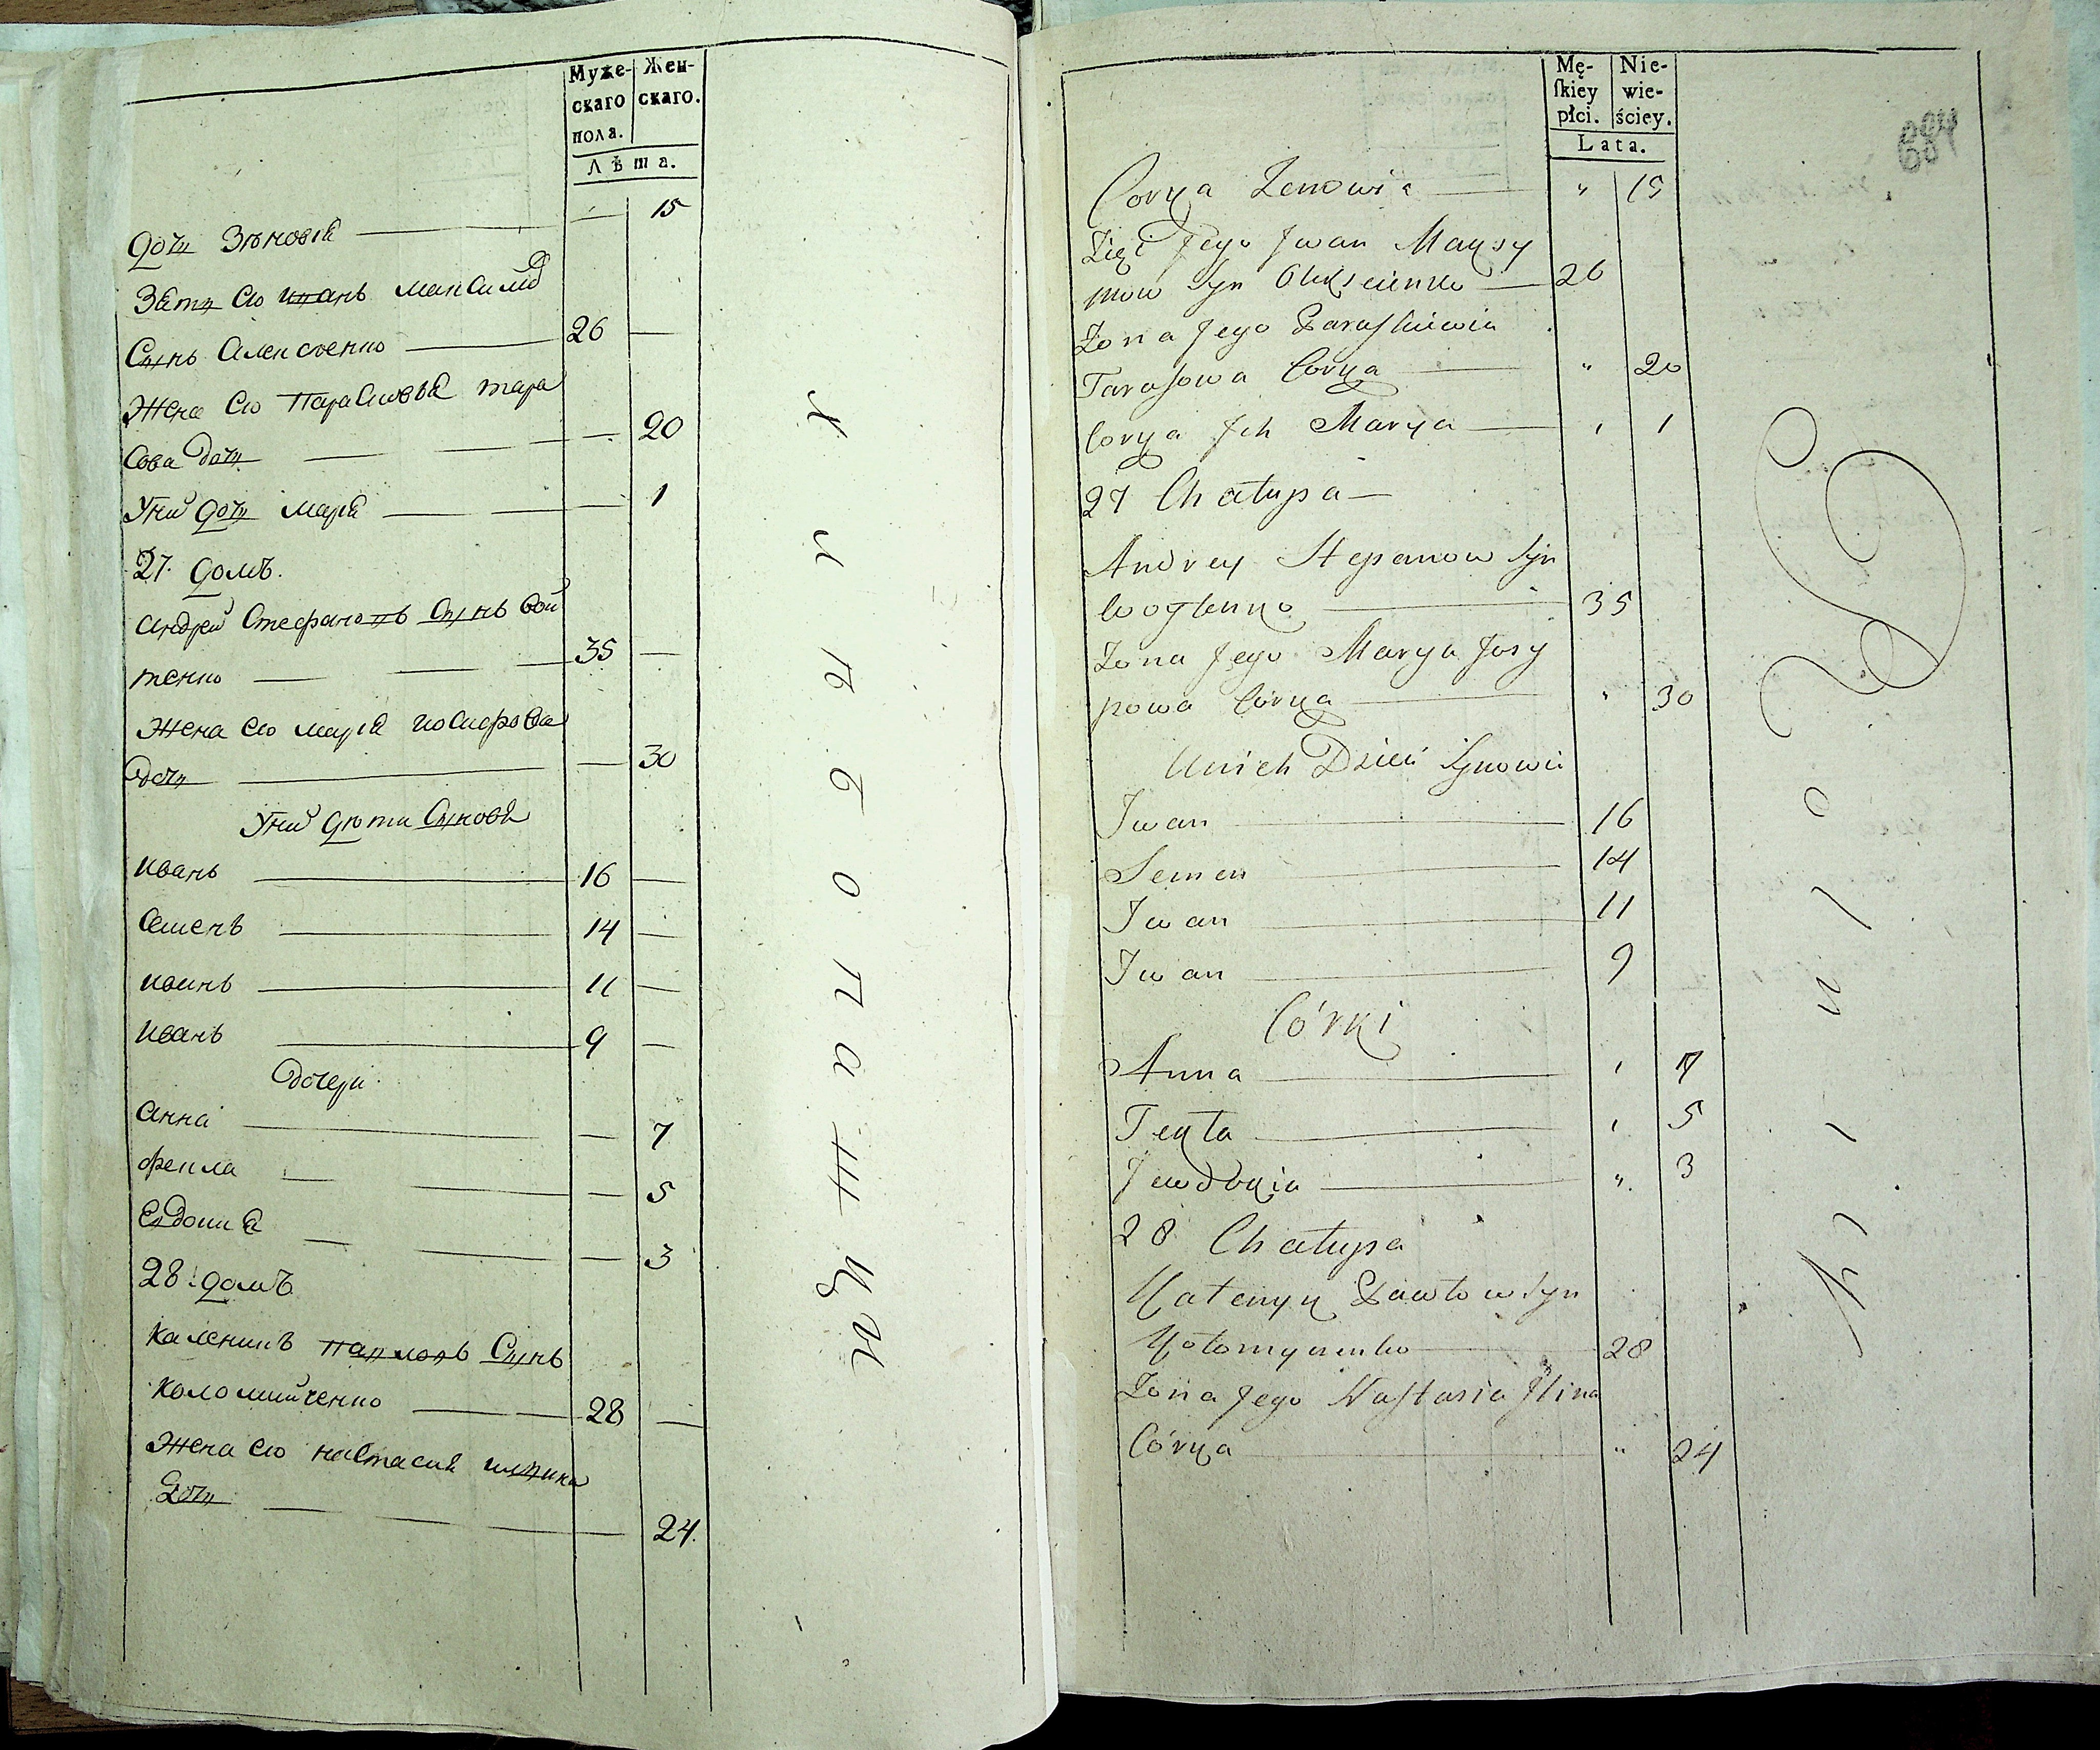 Муже-
скаго
пола.
Жен-
скаго.
Лѣта.
Дочь Зѣновія — 15
Зять его Иванъ Максимо
Сынъ Алексѣенко — 26 —
Жена его Парасковія Тара
сова дочь — 20
У них дочь Марія — 1
27. Домъ.
Андрей Стефановъ Сынъ Вой
тенко — 35 —
Жена его Марія Иосифова
дочь — 30
У них дѣти Сыновя
Иванъ — 16 —
Семенъ — 14 —
Иванъ — 11 —
Иванъ — 9 —
Дочери
Анна — 7
Фекла — 5
Евдокия — 3
28: Домъ
Каленикъ Павловъ Сынъ
Коломийченко — 28 —
Жена его Настасия
дочь — 24.
Mę-
ſkiey
płci.
Nie-
wie-
ściey.
Lata.
Corka Zenowia — " 15
Zięć Jego Jwan Maksy
mow Syn Olekseienko — 26
Zona Jego Paraſkiewia
Taraſowa Corka — " 20
Corka Jch Marya — " 1
27 Chałupa —
Andrey Stepanow Syn
Woytenko — 35
Zona Jego Marya Josy
powa Córka — " 30
Unich Dzieci Synowie
Jwan — 16
Semen — 14
Jwan — 11
Jwan — 9
Córki
Anna — " 7
Tekta — " 5
Jewdokia — " 3
28 Chałupa
Kalenyk Pawłow Syn
Kołomyienko — 28
Zona Jego Naſtasia Jlina
Córka — " 24